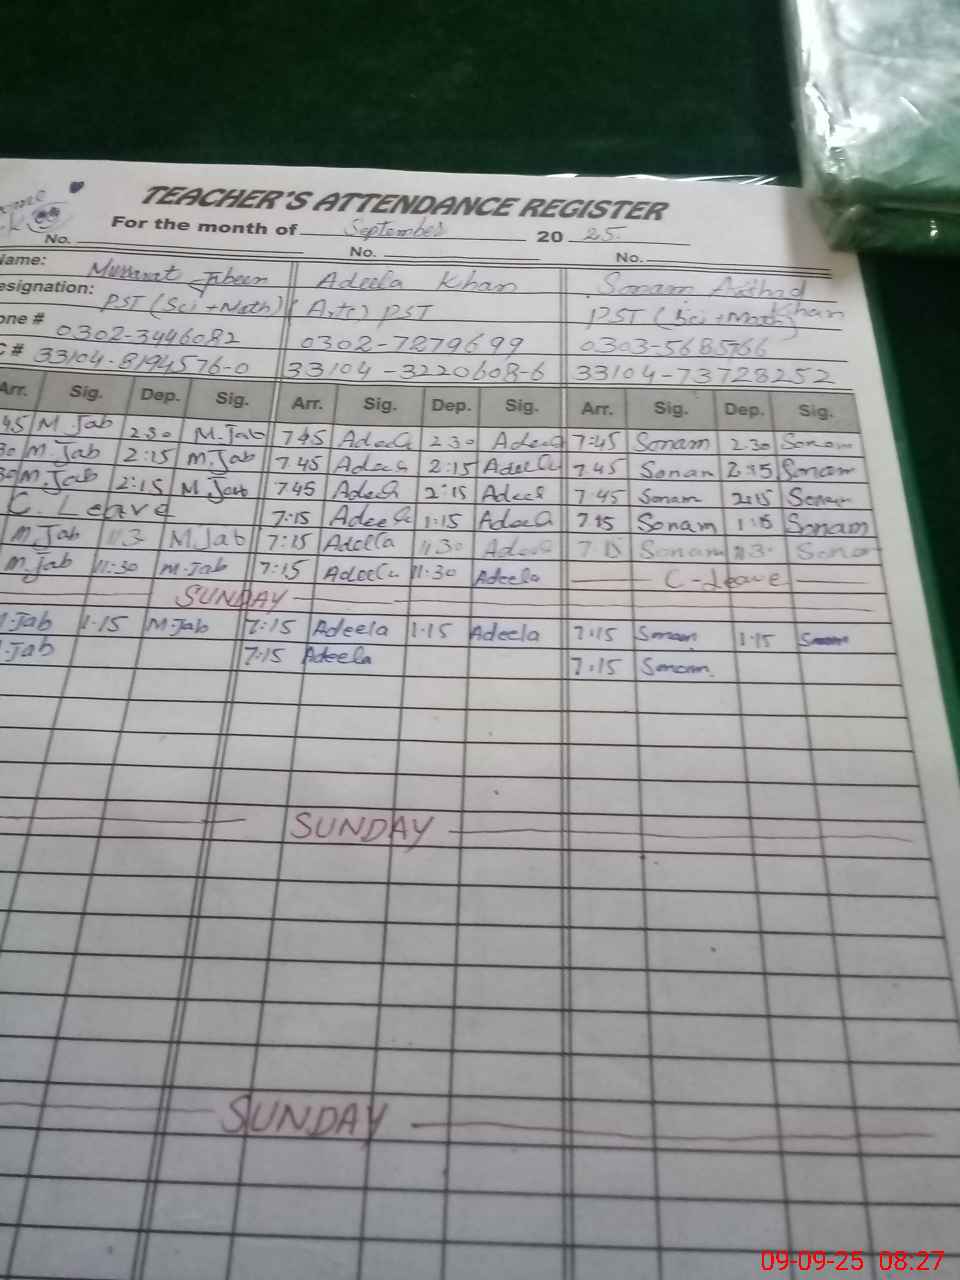 TEACHER'S ATTENDANCE REGISTER
For the month of September 20 25.
No. No. No.
Name: Mussarat Jabeen Adeela Khan Sonam Arshad Khan
esignation: PST (Sci + Math) (Arts) PST PST (Sci + Math)
one # 0302-3446082 0302-7279699 0303-5685766
C # 33104-8194576-0 33104-3220608-6 33104-73728252
Arr. Sig. Dep. Sig. Arr. Sig. Dep. Sig. Arr. Sig. Dep. Sig.
45 M.Jab 2:30 M.Jab 7:45 Adeela 2:30 Adeela 7:45 Sonam 2:30 Sonam
30 M.Jab 2:15 M.Jab 7:45 Adeela 2:15 Adeela 7:45 Sonam 2:15 Sonam
30 M.Jab 2:15 M.Jab 7:45 Adeela 2:15 Adeela 7:45 Sonam 2:15 Sonam
C. Leave 7:15 Adeela 1:15 Adeela 7:15 Sonam 1:15 Sonam
M.Jab 11:3 M.Jab 7:15 Adeela 11:30 Adeela 7:15 Sonam 11:30 Sonam
M.Jab 11:30 M.Jab 7:15 Adeela 11:30 Adeela C-Leave
SUNDAY
M.Jab 1:15 M.Jab 7:15 Adeela 1:15 Adeela 7:15 Sonam 1:15 Sonam
.Jab 7:15 Adeela 7:15 Sonam
SUNDAY
SUNDAY
09-09-25 08:27